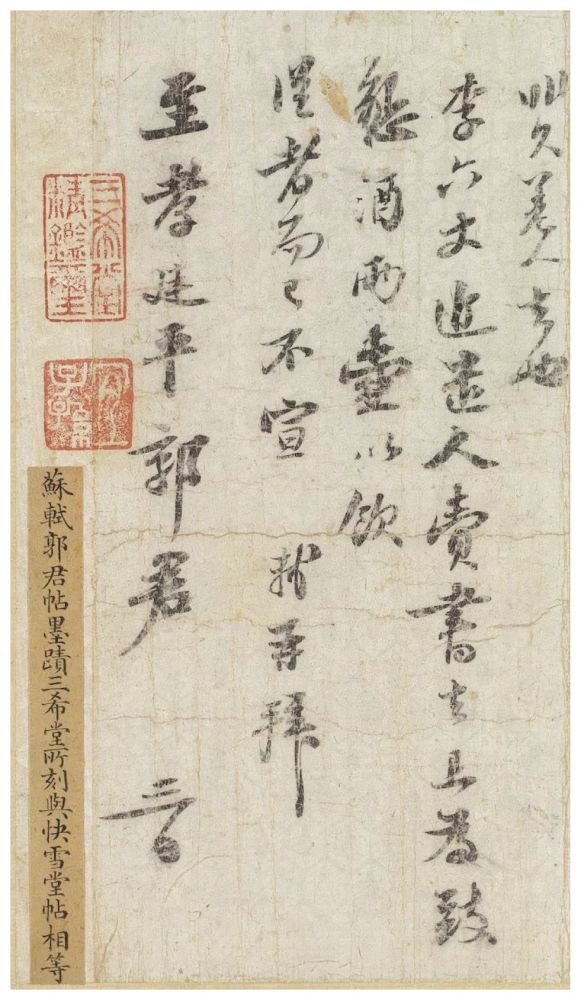 差人去也
李六丈近遣人賫書去且為致
懇酒兩壺以飲
從者而已不宣 軾再拜
至孝廷平郭君 三日
三希堂精鑑璽
宜子孫
蘇軾郭君帖墨蹟三希堂所刻與快雪堂帖相等